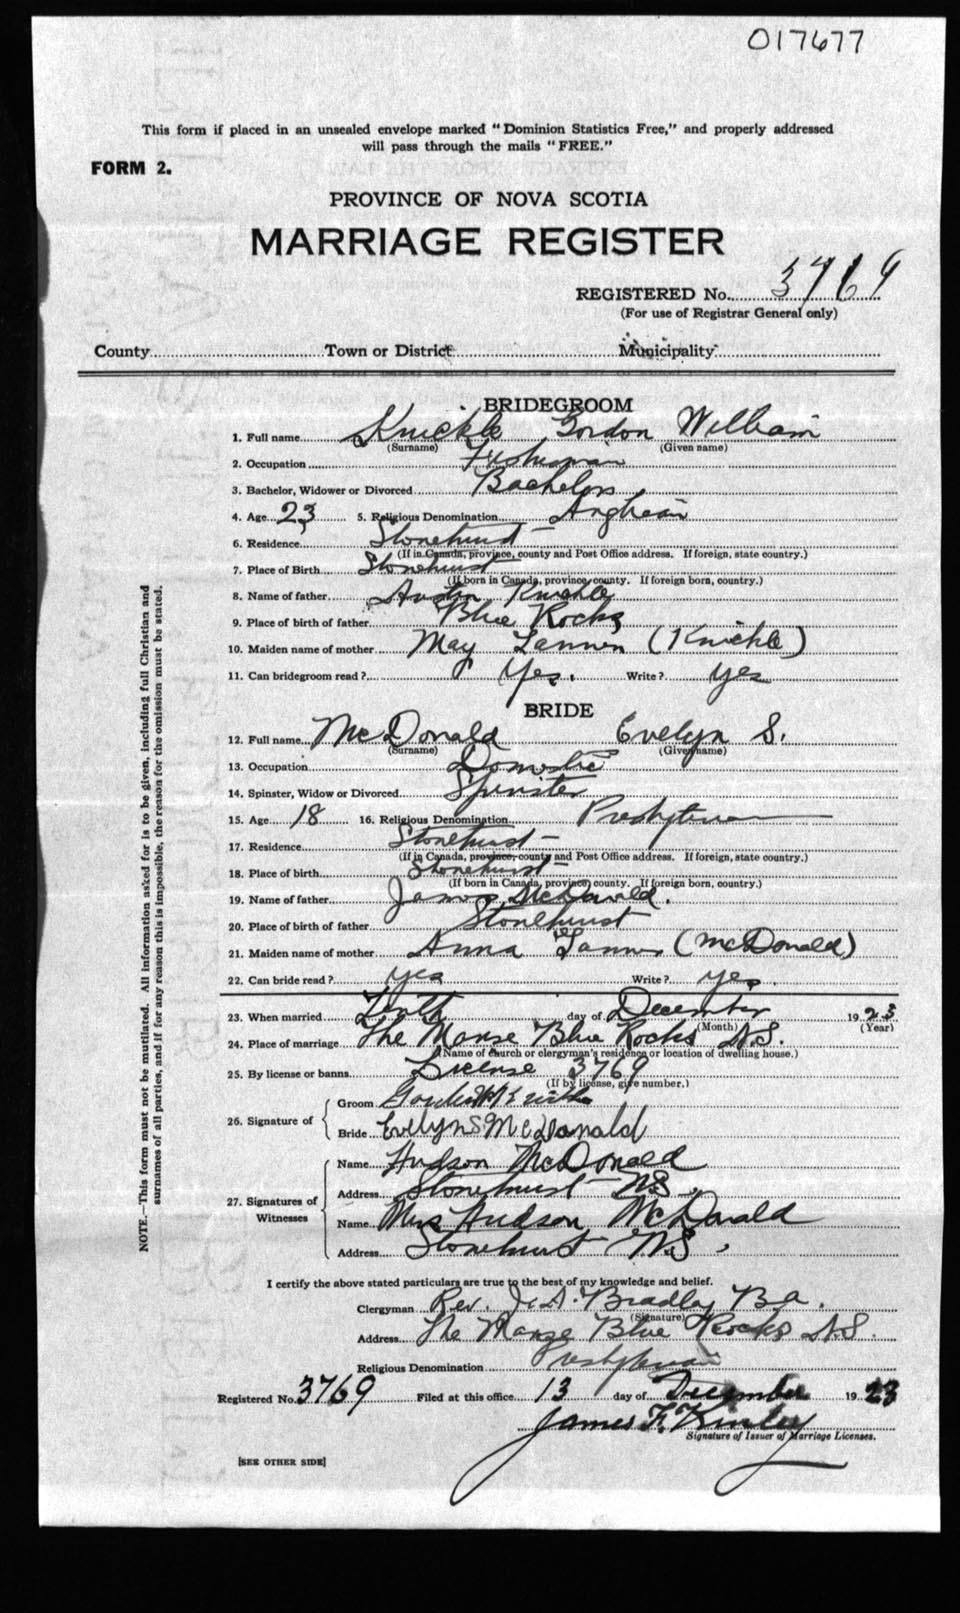 017677
This form if placed in an unsealed envelope marked "Dominion Statistics Free," and properly addressed
will pass through the mails "FREE."
FORM 2.
PROVINCE OF NOVA SCOTIA
MARRIAGE REGISTER
REGISTERED No. 3769
(For use of Registrar General only)
County Town or District Municipality
BRIDEGROOM
1. Full name Knickle Gordon William
(Surname) (Given name)
2. Occupation Fisherman
3. Bachelor, Widower or Divorced Bachelor
4. Age 23 5. Religious Denomination Anglican
6. Residence Stonehurst
(If in Canada, province, county and Post Office address. If foreign, state country.)
7. Place of Birth Stonehurst
(If born in Canada, province, county. If foreign born, country.)
8. Name of father Austin Knickle
9. Place of birth of father Blue Rocks
10. Maiden name of mother May Tanner (Knickle)
11. Can bridegroom read? Yes. Write? yes
BRIDE
12. Full name McDonald Evelyn S.
(Surname) (Given name)
13. Occupation Domestic
14. Spinster, Widow or Divorced Spinster
15. Age 18 16. Religious Denomination Presbyterian
17. Residence Stonehurst
(If in Canada, province, county and Post Office address. If foreign, state country.)
18. Place of birth Stonehurst
(If born in Canada, province, county. If foreign born, country.)
19. Name of father James McDonald.
20. Place of birth of father Stonehurst
21. Maiden name of mother Anna Tanner (McDonald)
22. Can bride read? yes Write? yes.
23. When married Tenth day of December 1923
(Month) (Year)
24. Place of marriage The Manse Blue Rocks N.S.
(Name of church or clergyman's residence or location of dwelling house.)
25. By license or banns License 3769
(If by license, give number.)
26. Signature of
Groom Gordon W Knickle
Bride Evelyn S McDonald
27. Signatures of Witnesses
Name Hudson McDonald
Address Stonehurst N.S.
Name Mrs Hudson McDonald
Address Stonehurst N.S.
I certify the above stated particulars are true to the best of my knowledge and belief.
Clergyman Rev. J. A. Bradley B.A.
(Signature)
Address The Manse Blue Rocks N.S.
Religious Denomination Presbyterian
Registered No. 3769 Filed at this office 13 day of December 1923
James F. Kinley
Signature of Issuer of Marriage Licenses.
[SEE OTHER SIDE]
NOTE.—This form must not be mutilated. All information asked for is to be given, including full Christian and
surnames of all parties, and if for any reason this is impossible, the reason for the omission must be stated.